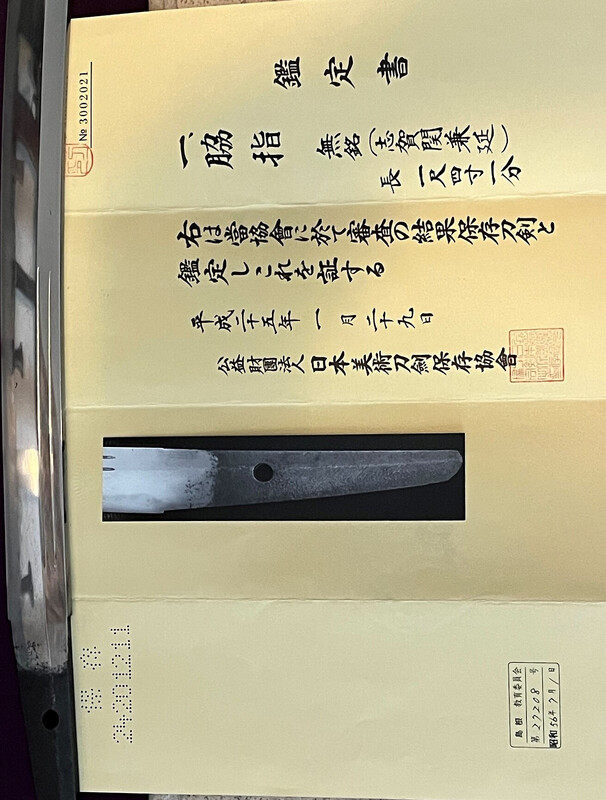 № 3002021
鑑定書
一、脇指 無銘(志賀関兼延)
長 一尺四寸一分
右は當協會に於て審査の結果保存刀剣と
鑑定しこれを証する
平成二十五年一月二十九日
公益財團法人日本美術刀劍保存協會
島根 教育委員会
第27208号
昭和56年9月1日